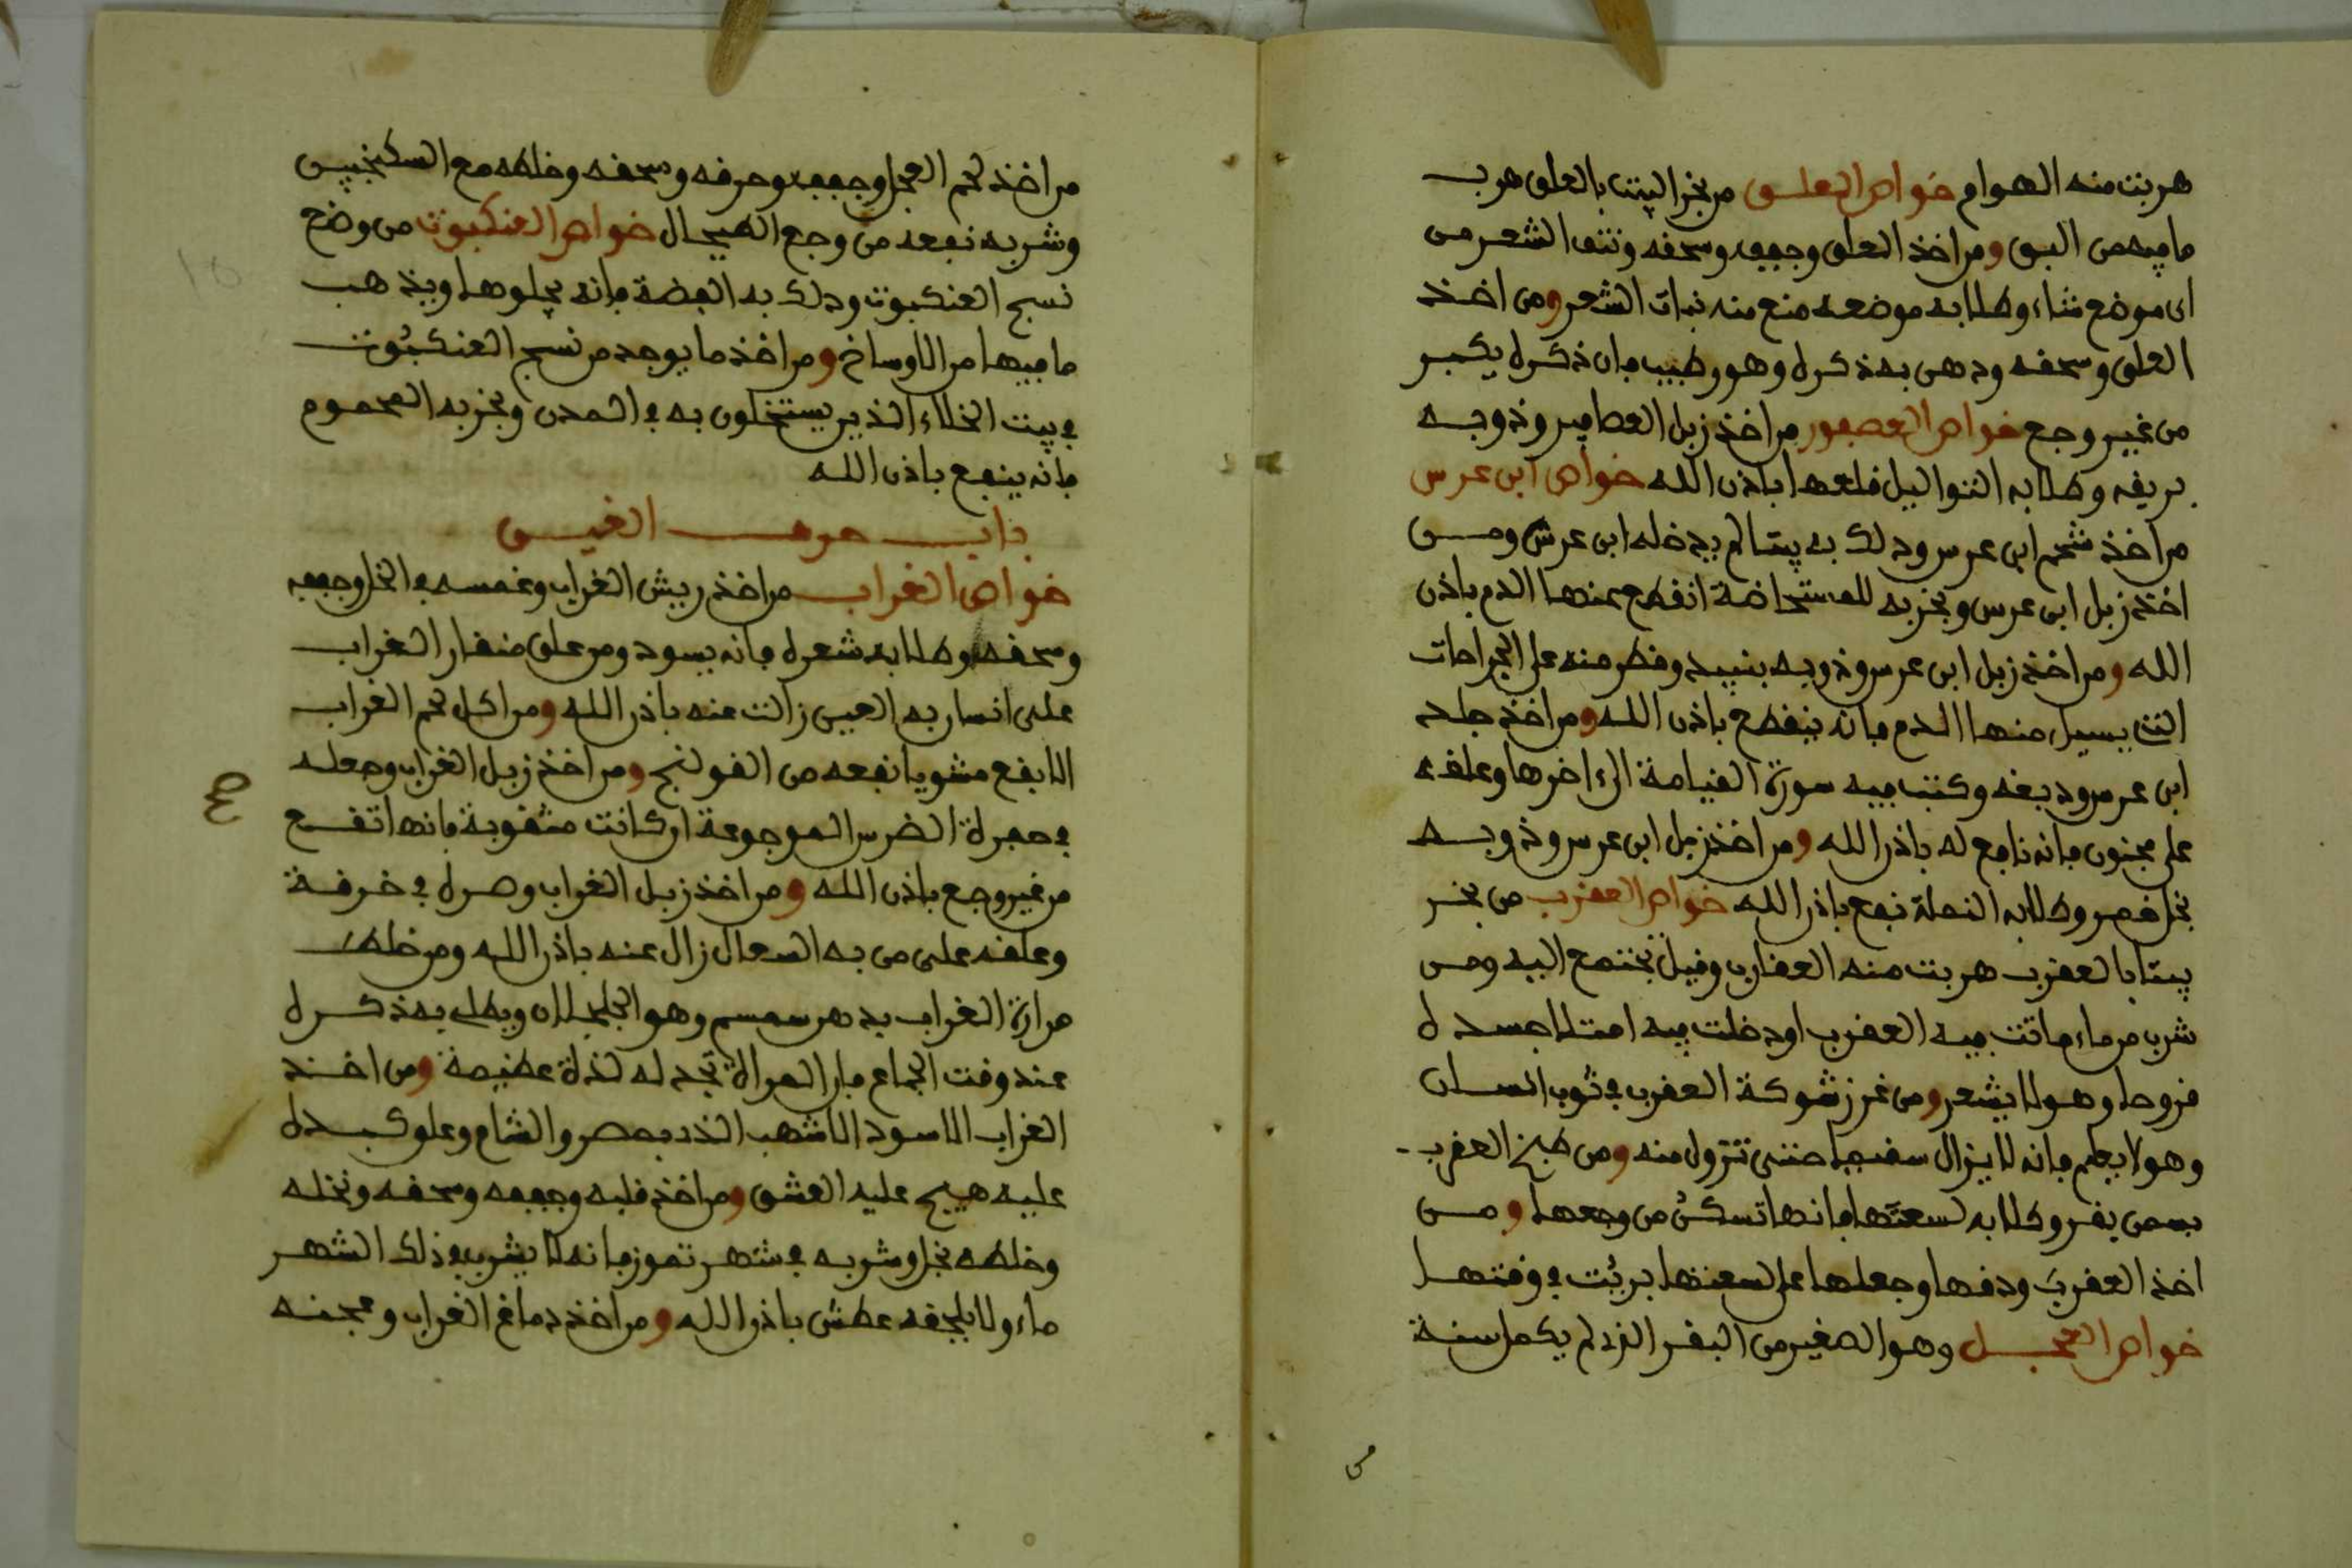 هربت منه الهوام خواص العلق من بخر البيت بالعلق هرب
ما فيه من البق ومن اخذ العلق وجففه وسحقه ونتف الشعر من
اي موضع شاء وطلا به موضعه منع منه نبات الشعر ومن اخذ
العلق وسحقه ودهن به ذكره وهو رطيب فان ذكره يكبر
من غير وجع خواص العصفور من اخذ زبل العصافير وذوبه
بريقه وطلا به الثواليل قلعها باذن الله خواص ابن عرس
من اخذ شحم ابن عرس ودلك به بيتا لم يدخله ابن عرس ومن
اخذ زبل ابن عرس وبخر به للمستحاضة انقطع عنها الدم باذن
الله ومن اخذ زبل ابن عرس وذوبه بنبيذ وقطر منه على الجراحات
التي يسيل منها الدم فانه ينقطع باذن الله ومن اخذ جلد
ابن عرس ودبغه وكتب فيه سورة القيامة الى اخرها وعلقه
على مجنون فانه نافع له باذن الله ومن اخذ زبل ابن عرس وذوبه
بخل خمر وطلا به النملة نفع باذن الله خواص العقرب من بخر
بيتا بالعقرب هربت منه العقارب وقيل تجتمع اليه ومن
شرب من ماء ماتت فيه العقرب او دخلت فيه امتلا جسده
قروحا وهو لا يشعر ومن غرز شوكة العقرب في ثوب انسان
وهو لا يعلم فانه لا يزال سقيما حتى تزول منه ومن طبخ العقرب
بسمن بقر وطلا به لسعتها فانها تسكن من وجعها ومن
اخذ العقرب ودقها وجعلها على لسعتها بريت في وقتها
خواص العجل وهو الصغير من البقر الذي لم يكمل سنة
من
من اخذ لحم العجل وجففه وحرقه وسحقه وخلطه مع السكنجبين
وشربه نفعه من وجع الطيحال خواص العنكبوت من وضع
نسج العنكبوت ودلك به الفضة فانه يجلوها ويذهب
ما فيها من الاوساخ ومن اخذ ما يوجد من نسج العنكبوت
في بيت الخلاء الذين يستخلون به في المدن وبخر به المحموم
فانه ينفع باذن الله
باب حرف الغين
خواص الغراب من اخذ ريش الغراب وغمسه في الخل وجففه
وسحقه وطلا به شعره فانه يسود ومن علق منقار الغراب
على انسان به العين زالت عنه باذن الله ومن اكل لحم الغراب
الابقع مشويا نفعه من القولنج ومن اخذ زبل الغراب وجعله
في حفرة الضرس الموجوعة ان كانت مثقوبة فانها تقع
من غير وجع باذن الله ومن اخذ زبل الغراب وصره في خرقة
وعلقه على من به السعال زال عنه باذن الله ومن خلط
مرارة الغراب بدهن سمسم وهو الجلجلان ويطلي به ذكره
عند وقت الجماع فان المراة تجد له لذة عظيمة ومن اخذ
الغراب الاسود الاشهب الذي بمصر والشام وعلق كبده
عليه هيج عليه العشق ومن اخذ قلبه وجففه وسحقه ونخله
وخلطه بخل وشربه في شهر تموز فانه لا يشرب في ذلك الشهر
ماء ولا يلحقه عطش باذن الله ومن اخذ دماغ الغراب وعجنه